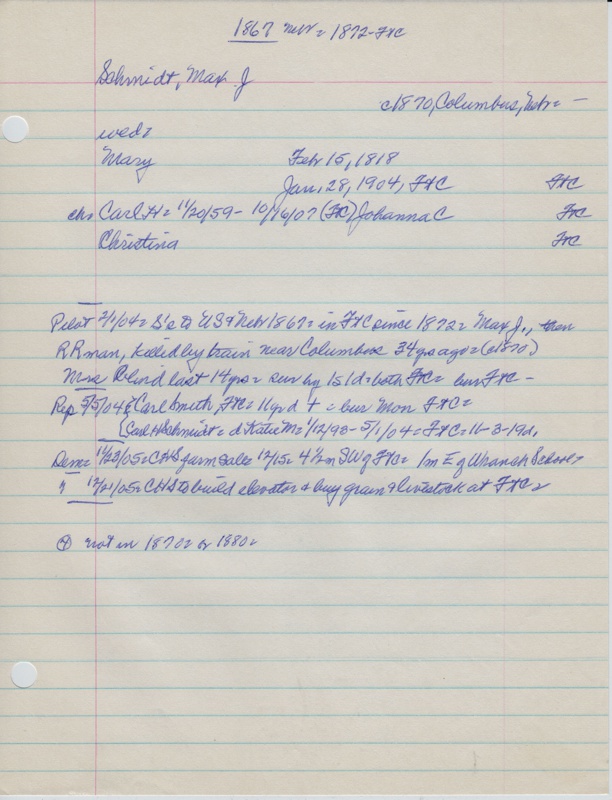 1867 Neb = 1872 - FtC
Schmidt, Max J
c1870, Columbus, Nebr = -
wed =
Mary Feb 15, 1818
Jan, 28, 1904, FtC FtC
chn Carl H = 11/20/59 - 10/16/07 (FtC) Johanna C FtC
Christina FtC
Pilot 2/1/04 = S's to US & Nebr 1867 = in FtC since 1872 = Max J.,
RR man, killed by train near Columbus 34 yrs ago = (c1870)
Mrs Blind last 14 yrs = sur by 1s 1d = both FtC = bur FtC -
Rep 5/5/04 { Carl Smith, FtC = 11 yr d + = bur Mon FtC =
{ Carl H Schmidt = d Katie M = 1/12/93 - 5/1/04 = FtC = 11-3-19d,
Dem = 11/23/05 = CHS farm sale 12/15 = 4 1/2 m SW of FtC = 1m E of Wranch School =
" 12/21/05 = CHS to build elevator & buy grain & livestock at FtC =
not in 1870 = or 1880 =